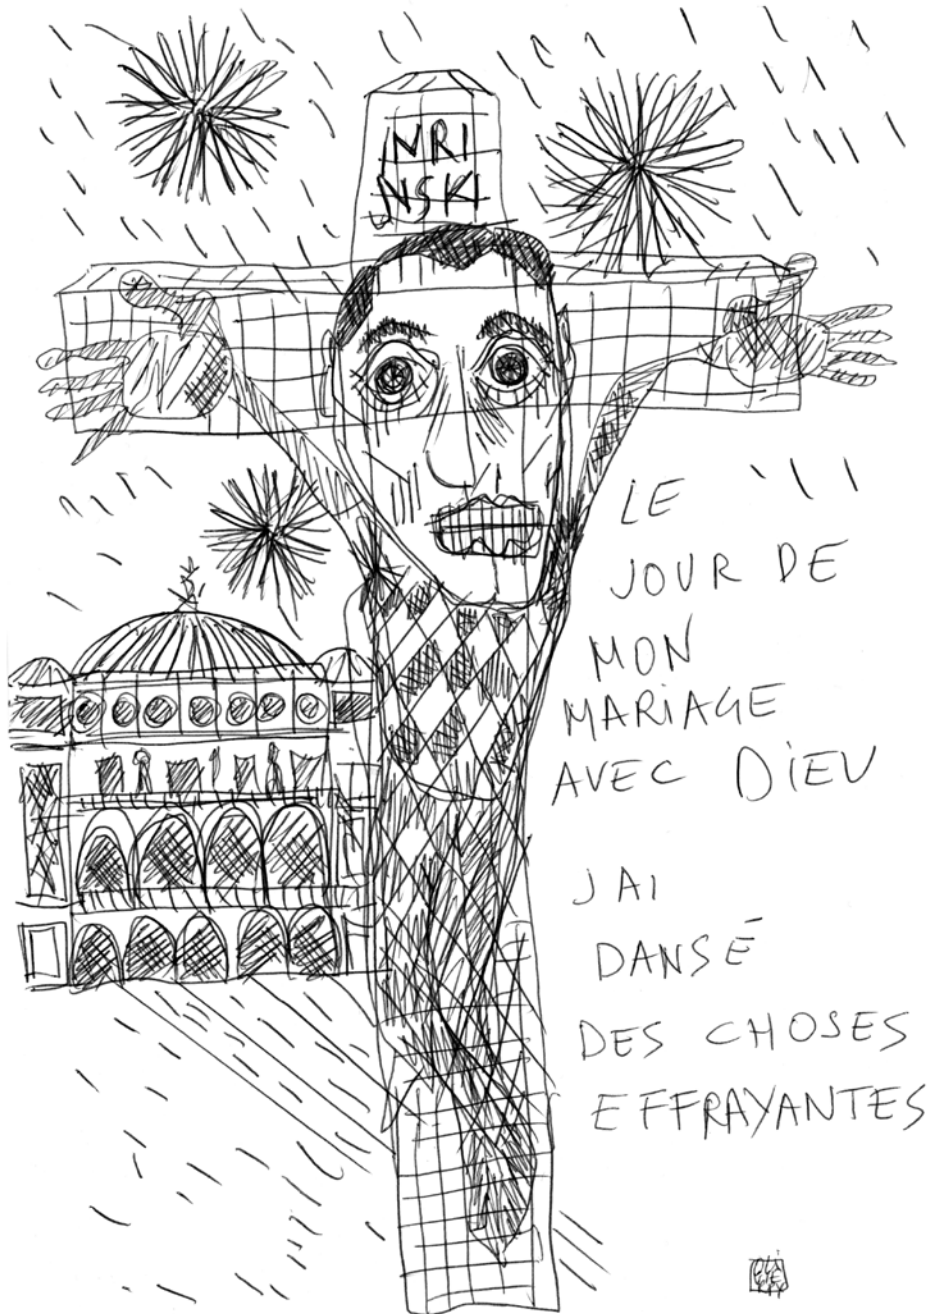 INRI
NSKI
LE
JOUR DE
MON
MARIAGE
AVEC DIEU
JAI
DANSÉ
DES CHOSES
EFFRAYANTES